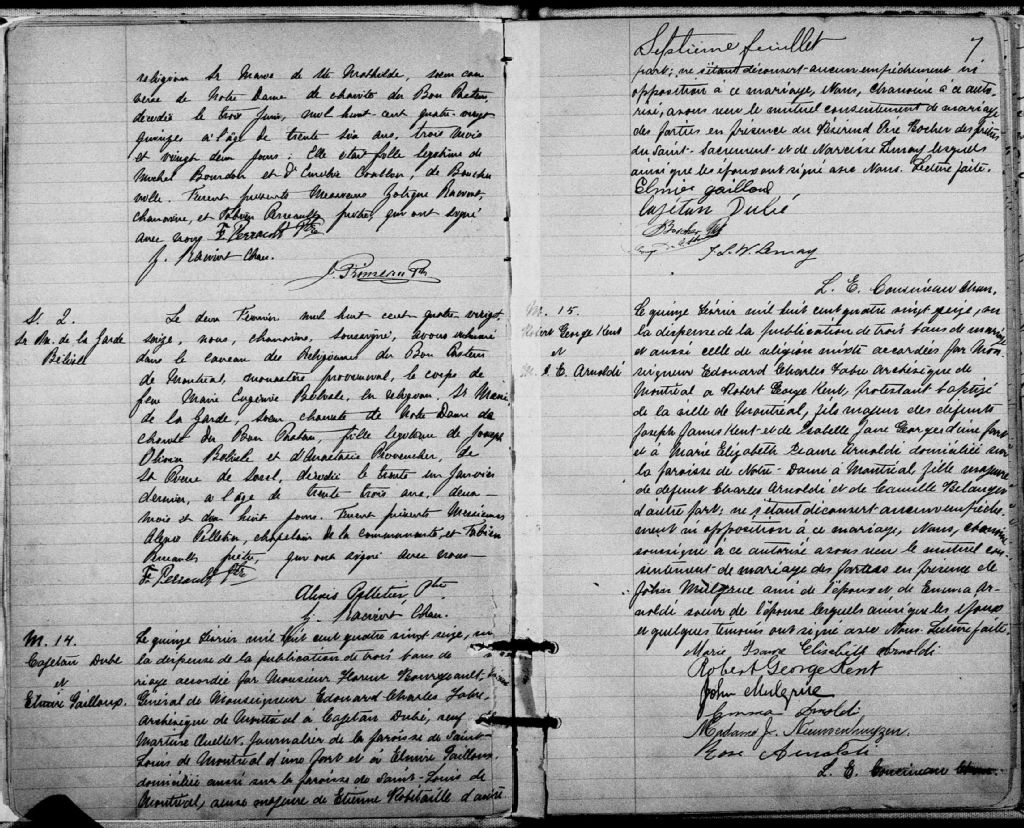 religion Sr Marie de Ste Mathilde, soeur con
verse de Notre Dame de charité du Bon Pasteur,
décédée le trois Juin, mil huit cent quatre-vingt
quinze à l'âge de trente six ans, trois mois
et vingt deux jours; Elle était fille légitime de
Michel Bourdon et d' Coutlen, de Boucher
ville. Furent présents Messieurs Zotique Racicot,
chanoine, et Fabien Perreault, prêtre, qui ont signé
avec nous F. Perreault Ptre
Z. Racicot Chan.
J. Primeau Ptr
S. 2.
Sr M. de la Garde
Bélisle
Le deux Février mil huit cent quatre vingt
seize, nous, chanoine, soussigné, avons inhumé
dans le caveau des Religieuses du Bon Pasteur
de Montréal, monastère provincial, le corps de
feue Marie Eugénie Belisle, en religion, Sr Marie
de la Garde, soeur choriste de Notre Dame de
charité du Bon Pasteur, fille légitime de Joseph
Olivier Belisle et d'Henriette Provencher, de
St Pierre de Sorel, décédée le trente un Janvier
dernier, à l'âge de trente trois ans, deux
mois et dix huit jours. Furent présents Messieurs
Alexis Pelletier, chapelain de la communauté, et Fabien
Perreault, prêtre, qui ont signé avec nous
F. Perreault Ptre
Alexis Pelletier Ptre
Z. Racicot Chan.
M. 14.
Cajetan Dubé
et
Elmire Gailloux.
Le quinze février mil huit cent quatre vingt seize, vu
la dispense de la publication de trois bans de
riage accordée par Monsieur Florent Bourgeault, Vicaire
Général de Monseigneur Edouard Charles Fabre
Archevêque de Montréal à Cajetan Dubé, veuf de
Martine Ouellet, journalier de la paroisse de Saint-
Louis de Montréal d'une part et à Elmire Gailloux
domiciliée aussi sur la paroisse de Saint-Louis de
Montréal, veuve majeure de Etienne Robitaille d'autre
Septième feuillet
7
part; ne s'étant découvert aucun empêchement ni
opposition à ce mariage, Nous, Chanoine à ce auto-
risé, avons reçu le mutuel consentement de mariage
des parties en présence du Révérend Père Rocher des prêtres
du Saint-Sacrement et de Narcisse Lemay lesquels
ainsi que les époux ont signé avec Nous. Lecture faite.
Elmire gailloux
Cajétan Dubé
J. L. W. Lemay
L. E. Cousineau Chan.
M. 15.
Robert George Kent
et
M. I. E. Arnoldi
Le quinze février mil huit cent quatre vingt seize, vu
la dispense de la publication de trois bans de mariage
et aussi celle de religion mixte accordées par Mon-
seigneur Edouard Charles Fabre Archevêque de
Montréal à Robert George Kent, protestant baptisé
de la ville de Montréal, fils majeur des défunts
Joseph James Kent et de Isabelle Jane Georges d'une part
et à Marie Elizabeth Isaure Arnoldi domiciliée sur
la paroisse de Notre-Dame à Montréal fille majeure
de défunt Charles Arnoldi et de Camille Bélanger
d'autre part; ne s'étant découvert aucun empêche-
ment ni opposition à ce mariage, Nous, chanoine
soussigné à ce autorisé avons reçu le mutuel con-
sentement de mariage des parties en présence de
John Mulgrue ami de l'époux et de Emma Ar-
noldi soeur de l'épouse lesquels ainsi que les époux
et quelques témoins ont signé avec Nous. Lecture faite.
Marie Isaure Elisabeth Arnoldi
Robert George Kent
John Mulgrue
Emma Arnoldi
Madame J. Nieuwenhuyzen.
Rose Arnoldi
L. E. Cousineau Chan.